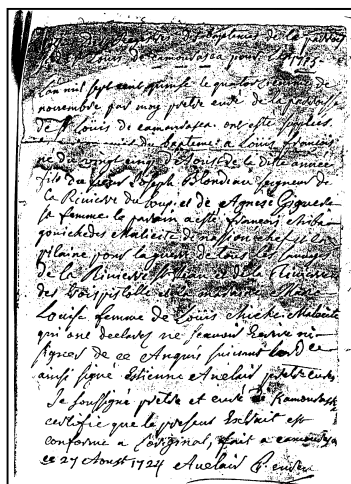 des Baptemes de la paroisse
St Louis de Camouraska pour 1715
L'an mil sept cent quinse le quatorze
novembre par moy prêtre curé de la paroisse
de St Louis de camouraska ont esté supplées
du baptemes a Louis François
né du vingt cinq d'Aout de la ditte année
fils du sieur Joseph Blondeau seigneur de
la Riviere du Loup, et de Agnese Giguere
sa femme le parain a esté François
Maleciste de nation chef et ca
pitaine pour la guerre de tous les sauvages
de la Riviere St Jean et de la Riviere
des trois pistolle et la maraine Marie
Louise femme de Louis Michel Malecite
qui ont declares ne sçavoir Ecrire ni
signer de ce Enquis suivant l'ord ce
ainsi signé Estienne Auclair prêtre curé
Je soussigné prêtre et curé de Kamouraska
certifie que le present Extrait est
conforme a l'original, fait a camouraska
ce 27 Aoust 1724 Auclair P. curé